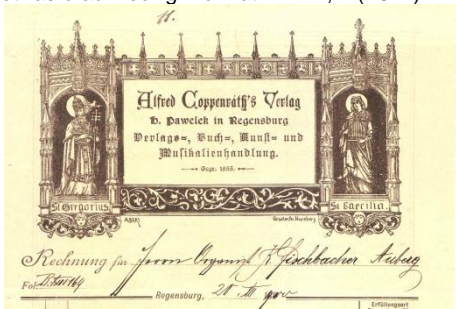 18.
Alfred Coppenrath's Verlag
H. Pawelek in Regensburg
Verlags-, Buch-, Kunst- und
Musikalienhandlung.
Gegr. 1855.
St Gregorius.
St Caecilia.
Rechnung für Herrn Organist J. Fischbacher
Fol.
Regensburg, 20. III 1900
Erfüllungsort